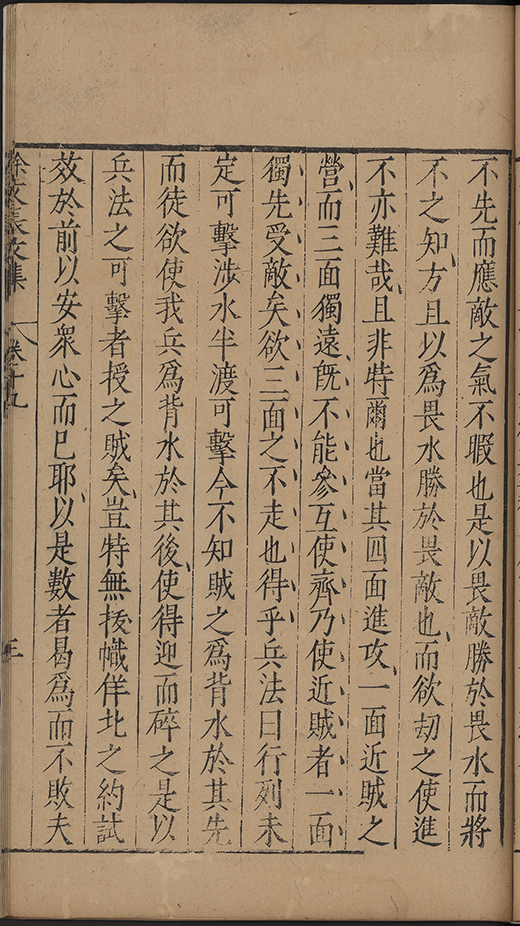 不先而應敵之氣不暇也是以畏敵勝於畏水而將
不之知方且以爲畏水勝於畏敵也而欲刧之使進
不亦難哉且非特爾也當其四面進攻一面近賊之
營而三面獨遠旣不能參互使齊乃使近賊者一面
獨先受敵矣欲三面之不走也得乎兵法曰行列未
定可擊涉水半渡可擊今不知賊之爲背水於其先
而徒欲使我兵爲背水於其後使得迎而碎之是以
兵法之可擊者授之賊矣豈特無拔幟佯北之約試
效於前以安衆心而已耶以是數者曷爲而不敗夫
徐文長文集
卷十九
三